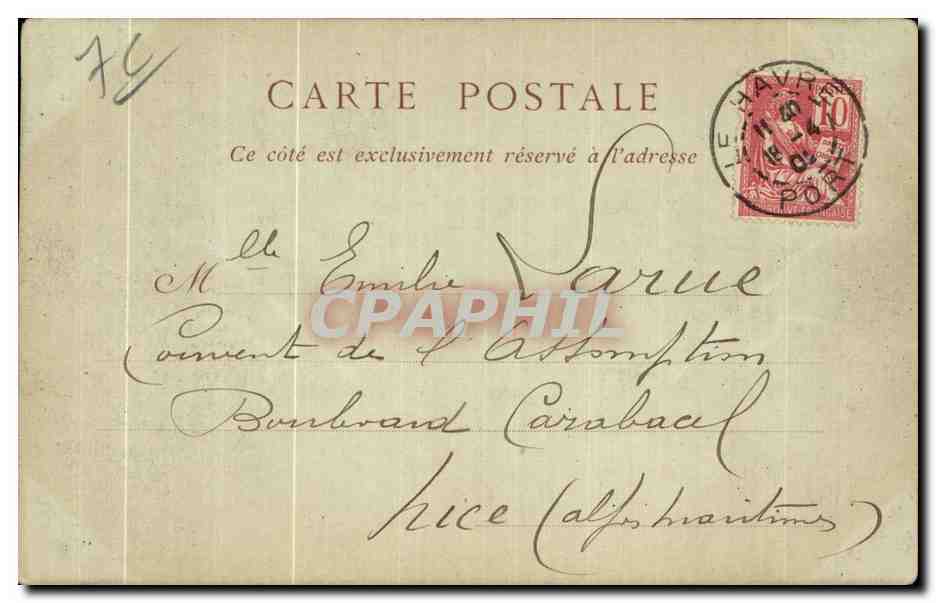 76
CARTE POSTALE
Ce côté est exclusivement réservé à l'adresse
LE HAVRE
PORT
10
Mlle Emilie Larue
Couvent de l'Assomption
Boulevard Carabacel
Nice (alpes maritimes)
CPAPHIL